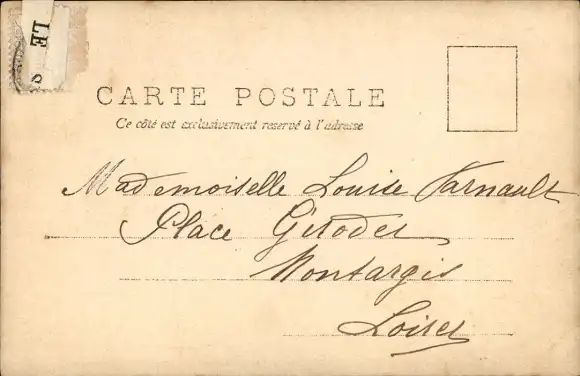 LE S
CARTE POSTALE
Ce côté est exclusivement reservé à l'adresse
Mademoiselle Louise Varnault
Place Girodet
Montargis
Loiret